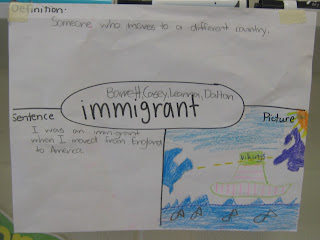 Definition:
Someone who moves to a different country.
Barrett, Casey, Leanna, Dalton
immigrant
Sentence
I was an immigrant
when I moved from England
to America.
Picture
Vikings